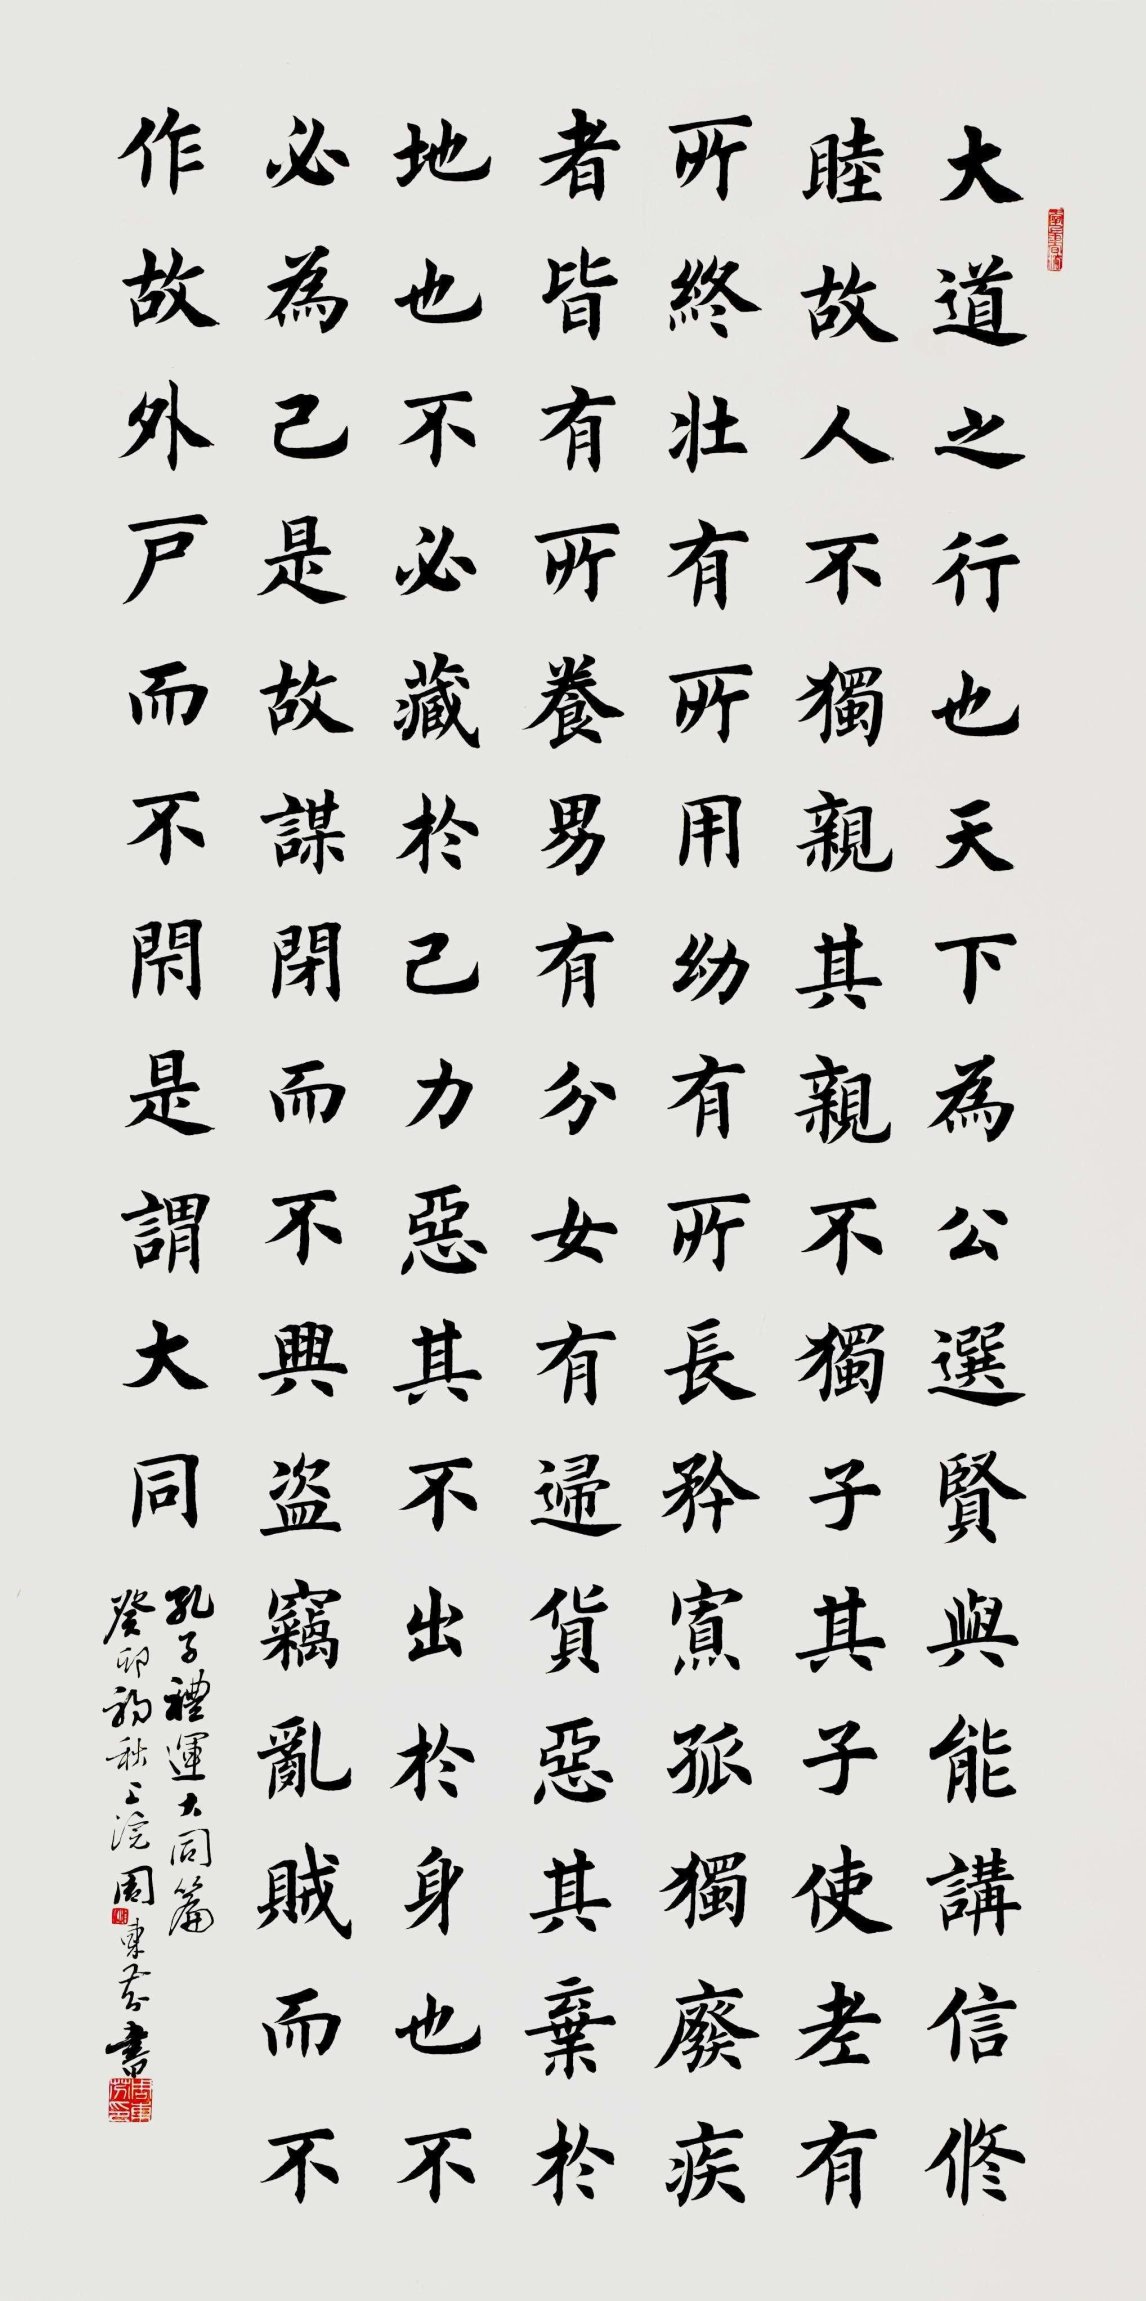 大道之行也天下為公選賢與能講信修
睦故人不獨親其親不獨子其子使老有
所終壯有所用幼有所長矜寡孤獨廢疾
者皆有所養男有分女有歸貨惡其棄於
地也不必藏於己力惡其不出於身也不
必為己是故謀閉而不興盜竊亂賊而不
作故外戶而不閇是謂大同
孔子禮運大同篇
癸卯初秋上浣周東芬書